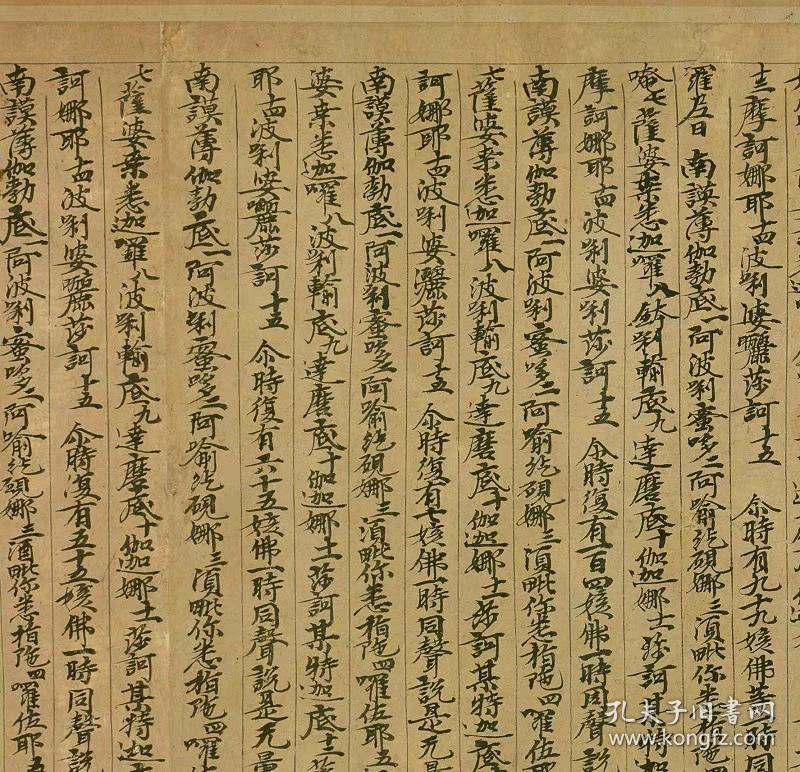 士摩訶娜耶十四波唎婆囇莎訶十五 尒時有九十九姟佛等一時同
羅左曰 南謨薄伽勃底一阿波唎蜜哆二阿喻紇硯娜三須毗你悉指陁
唵七薩婆桒悉迦囉八鉢唎輸底九達磨底十伽迦娜十一莎訶某特迦
摩訶娜耶十四波唎婆唎莎訶十五 尒時復有一百四姟佛一時同聲說
南謨薄伽勃底一阿波唎蜜哆二阿喻紇硯娜三須毗你悉指陁四囉佐耶
七薩婆桒悉迦囉八波唎輸底九達磨底十伽迦娜十一莎訶某特迦底
訶娜耶十四波唎婆囇莎訶十五 尒時復有七姟佛一時同聲說是无量
南謨薄伽勃底一阿波唎蜜哆二阿喻紇硯娜三須毗你悉指陁四囉佐耶五
婆桒悉迦囉八波唎輸底九達磨底十伽迦娜十一莎訶某特迦底十二
耶十四波唎婆囇莎訶十五 尒時復有六十五姟佛一時同聲說是无量
南謨薄伽勃底一阿波唎蜜哆二阿喻紇硯娜三須毗你悉指陁四囉佐
七薩婆桒悉迦囉八波唎輸底九達磨底十伽迦娜十一莎訶某特迦
訶娜耶十四波唎婆囇莎訶十五 尒時復有五十五姟佛一時同聲說
南謨薄伽勃底一阿波唎蜜哆二阿喻紇硯娜三須毗你悉指陁四囉佐耶五
孔夫子旧书网
www.kongfz.com